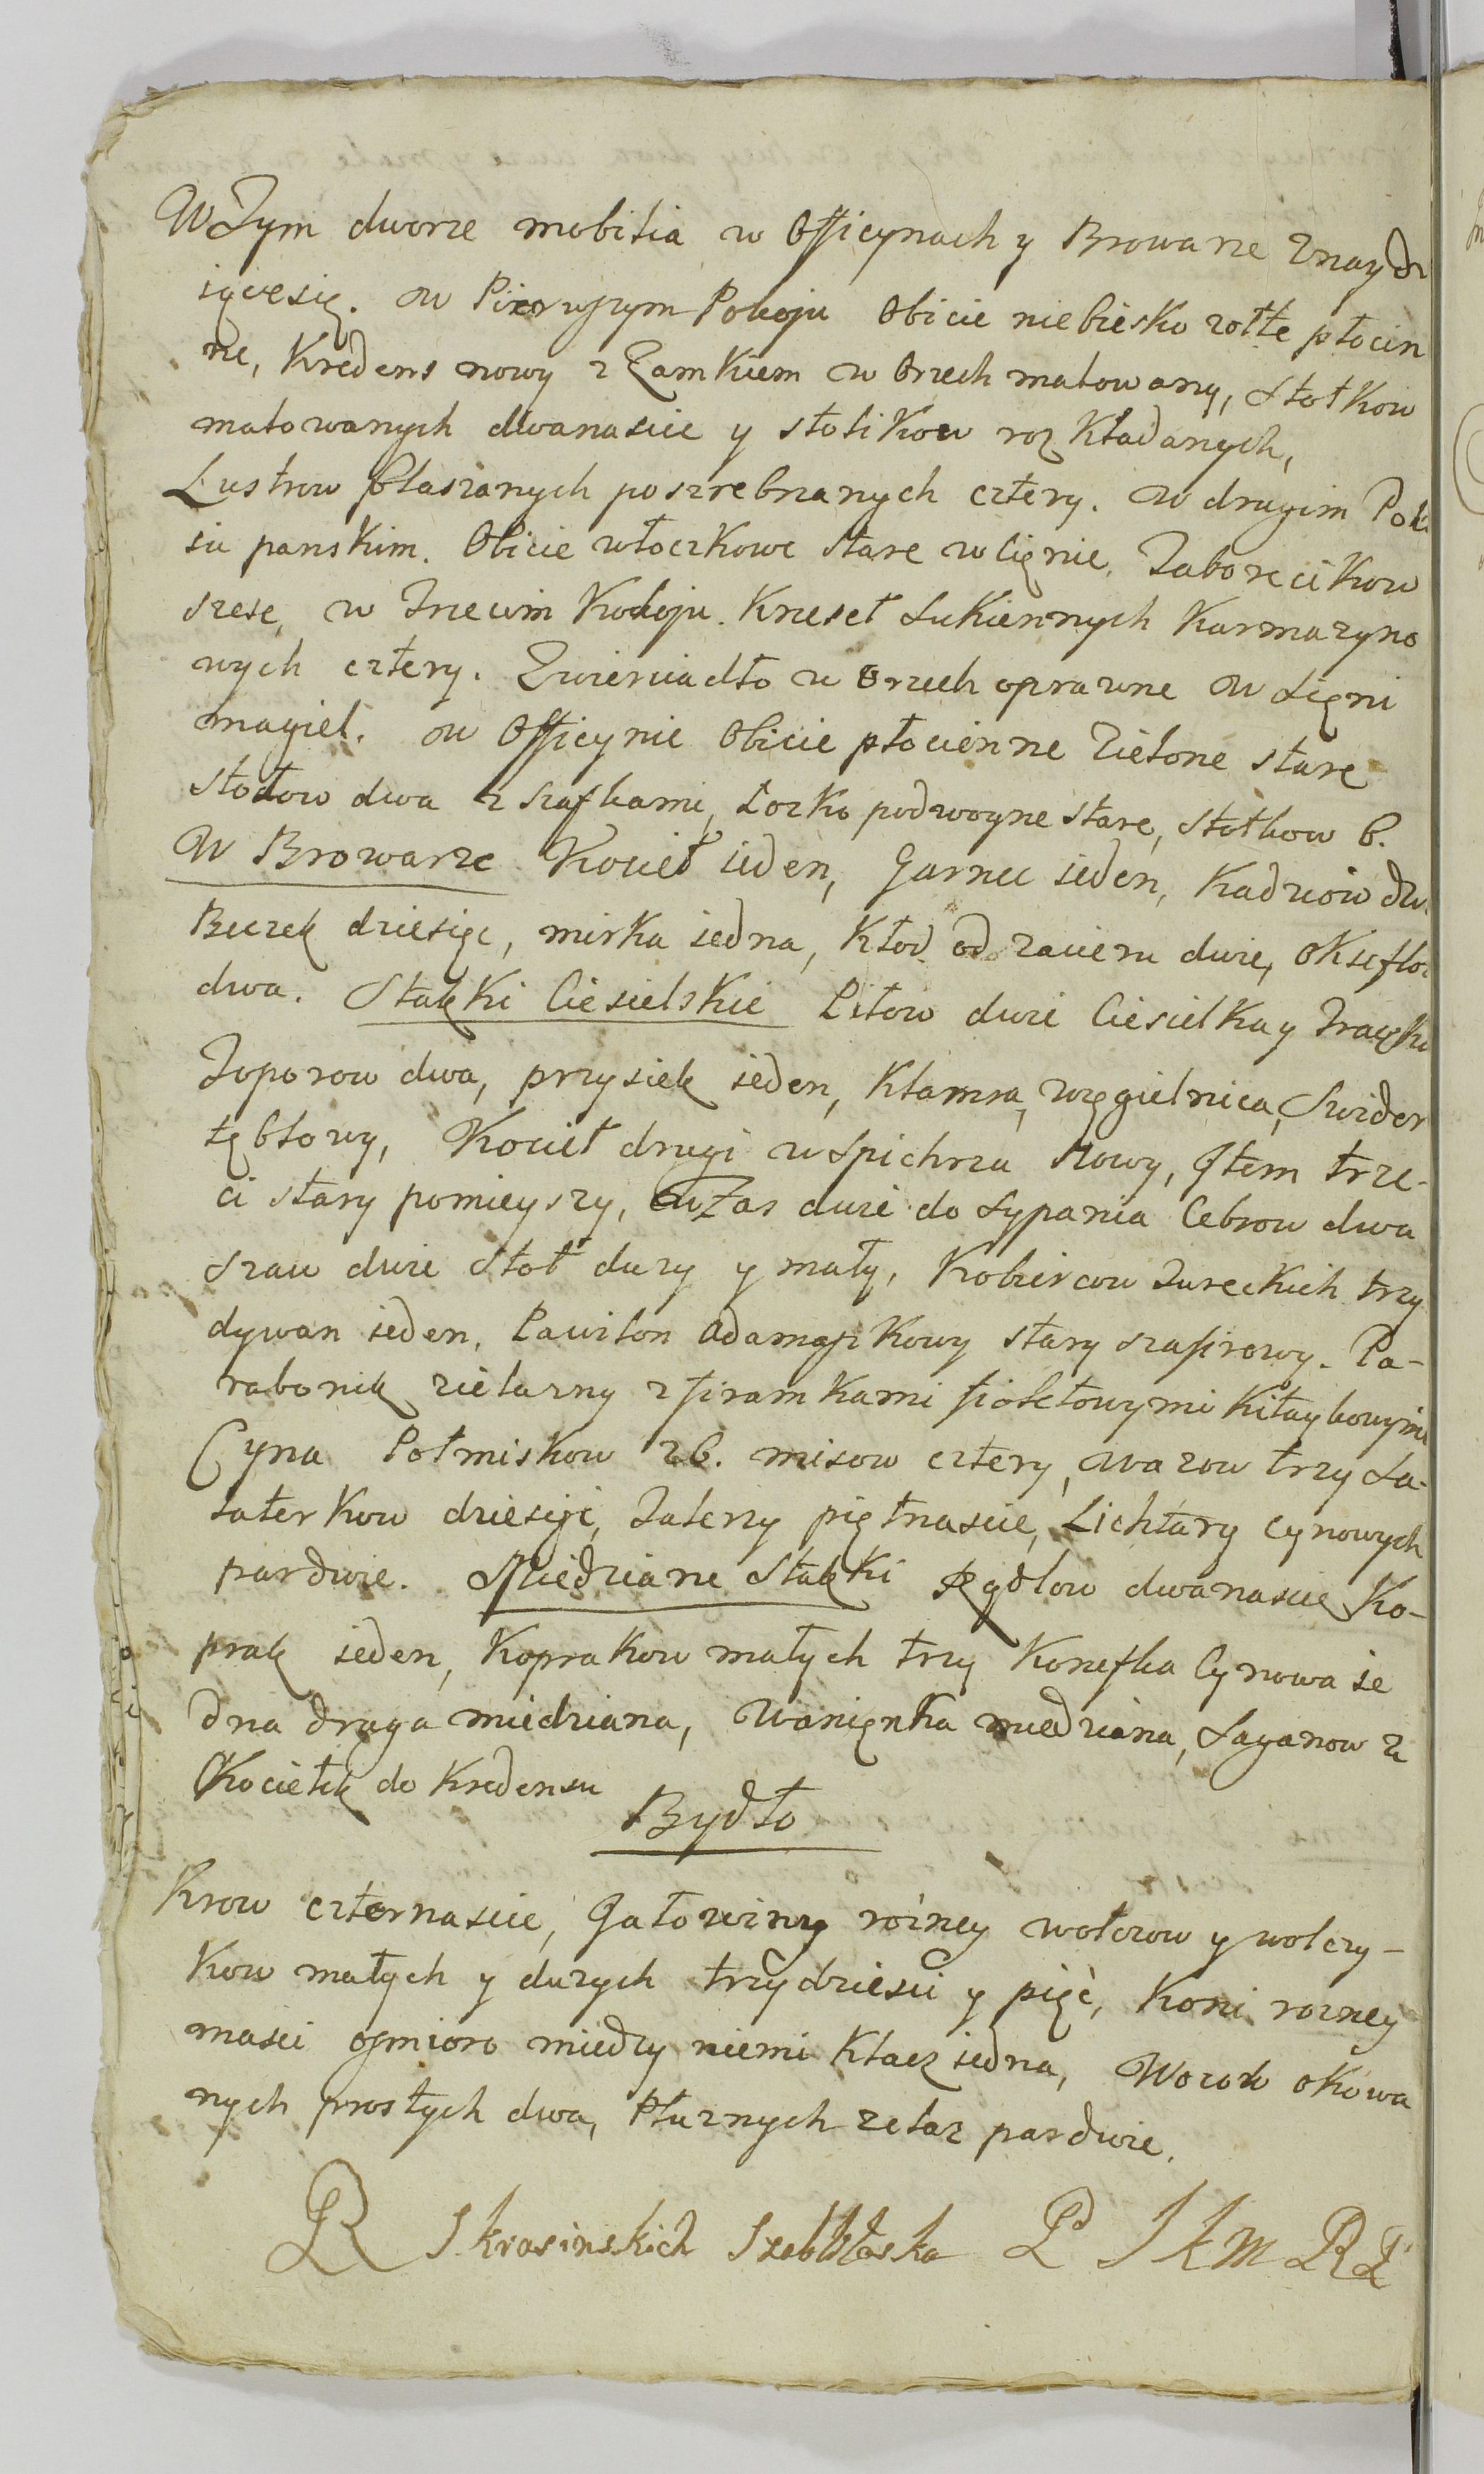 W Tym dworze mobilia w Officynach y Browarze znayd
iącesię. w Pierwszym Pokoju Obicie niebiesko zołte płocin
ne, Kredens nowy z Zamkiem w Orzech malowany, Stołkow
malowanych dwanascie y stolikow roz Kładanych,
Luster blaszanych poszrebrzanych cztery. w drugim Pok
iu panskim. Obicie włoczkowe stare w Cięnie, Taborecikow
szesc, w Trzecim Pokoju. Krzeseł Sukiennych Karmazyno
wych cztery. Zwierciadło w Orzech oprawne w Sięni
magiel. w Officynie Obicie płocienne Zielone stare
stołow dwa z szafkami, Łozko podwoyne stare, stołkow 6.
W Browarze Kocieł ieden, Garnec ieden, Kadziow dw
Beczek dziesięc, mirka iedna, Kłod od zacieru dwie, Oksefto
dwa. Statki Ciesielskie Piłow dwie Ciesielka y Traczka
Toporow dwa, przysiek ieden, Klamra, węgielnica, Swider
łębłowy, Kocieł drugi w Spichrzu Nowy, Item trze-
ci stary pomieyszy, Waz as dwie do sypania Cebrow dwa
Szaw dwie Stoł duzy y mały, Kobiercow Tureckich trzy
dywan ieden, Pawilon Adamaszkowy stary szafirowy. Pa-
rabonik zielazny z firamkami fioletowymi Kitaykowymi
Cyna Połmiskow 26. misow cztery, Wazow trzy Sa-
laterkow dziesięć, Talerzy piętnascie, Lichtarzy cynowych
pardwie. Miedziane Statki Rądlow dwanascie Ko-
prak ieden, Koprakow małych trzy Konefka Cynowa ie
dna druga miedziana, Wanięnka miedziana, Saganow 2
Kociełek do Kredensu
Bydło
Krow czternascie, Jałowizny rózney wołcow y wolczy-
kow małych y duzych trzydziesci y pięć, Koni rozney
masci osmioro miedzy niemi Klacz iedna, Wozow okowa
nych prostych dwa, Płuznych zelaz pardwie.
R Skrasinskich